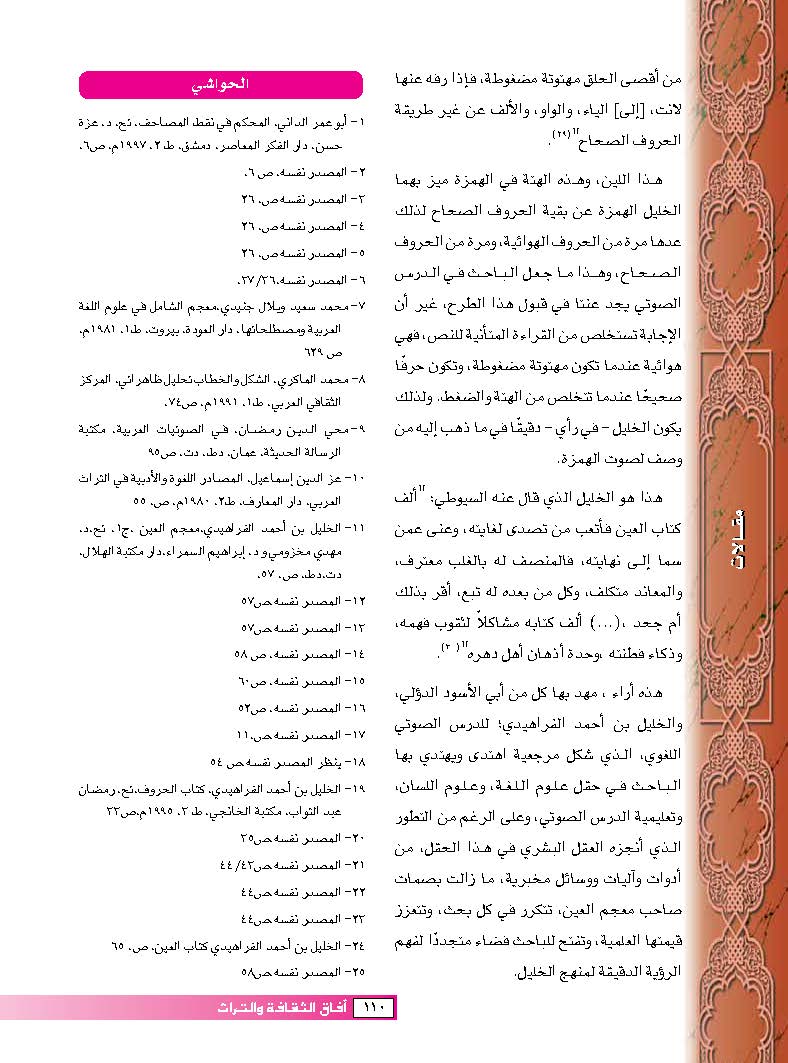 من أقصى الحلق مهتوتة مضغوطة، فإذا رفه عنها
لانت، [إلى] الياء، والواو، والألف عن غير طريقة
الحروف الصحاح"(٢٩).
هذا اللين، وهذه الهتة في الهمزة ميز بهما
الخليل الهمزة عن بقية الحروف الصحاح لذلك
عدها مرة من الحروف الهوائية، ومرة من الحروف
الصحاح، وهذا ما جعل الباحث في الدرس
الصوتي يجد عنتا في قبول هذا الطرح، غير أن
الإجابة تستخلص من القراءة المتأنية للنص، فهي
هوائية عندما تكون مهتوتة مضغوطة، وتكون حرفًا
صحيحًا عندما تتخلص من الهتة والضغط. ولذلك
يكون الخليل – في رأي – دقيقًا في ما ذهب إليه من
وصف لصوت الهمزة.
هذا هو الخليل الذي قال عنه السيوطي؛ "ألف
كتاب العين فأتعب من تصدى لغايته، وعنى عمن
سما إلى نهايته، فالمنصف له بالغلب معترف،
والمعاند متكلف، وكل من بعده له تبع، أقر بذلك
أم جحد ،(...) ألف كتابه مشاكلاً لثقوب فهمه،
وذكاء فطنته ،وحدة أذهان أهل دهره"(٣٠).
هذه أراء ، مهد بها كل من أبي الأسود الدؤلي،
والخليل بن أحمد الفراهيدي؛ للدرس الصوتي
اللغوي، الذي شكل مرجعية اهتدى ويهتدي بها
الباحث في حقل علوم اللغة، وعلوم اللسان،
وتعليمية الدرس الصوتي، وعلى الرغم من التطور
الذي أنجزه العقل البشري في هذا الحقل، من
أدوات وآليات ووسائل مخبرية، ما زالت بصمات
صاحب معجم العين، تتكرر في كل بحث، وتتعزز
قيمتها العلمية، وتفتح للباحث فضاء متجددًا لفهم
الرؤية الدقيقة لمنهج الخليل.
الحواشي
١- أبو عمر الداني، المحكم في نقط المصاحف، تح، د، عزة
حسن، دار الفكر المعاصر، دمشق، ط٢، ١٩٩٧م، ص٦.
٢- المصدر نفسه، ص ٦.
٣- المصدر نفسه ص، ٢٦
٤- المصدر نفسه ص، ٢٦
٥- المصدر نفسه ص، ٢٦
٦- المصدر نفسه،٣٧/٣٦.
٧- محمد سعيد وبلال جنيدي،معجم الشامل في علوم اللغة
العربية ومصطلحاتها، دار العودة، بيروت، ط١، ١٩٨١م،
ص ٦٣٩
٨- محمد الماكري، الشكل والخطاب تحليل ظاهراتي، المركز
الثقافي العربي، ط١، ١٩٩١م، ص٧٤.
٩- محي الدين رمضان، في الصوتيات العربية، مكتبة
الرسالة الحديثة، عمان، دط، دت، ص٩٥
١٠- عز الدين إسماعيل، المصادر اللغوة والأدبية في التراث
العربي، دار المعارف، ط٢، ١٩٨٠م، ص، ٥٥
١١- الخليل بن أحمد الفراهيدي،معجم العين ،ج١، تح،د،
مهدي مخزومي و د، إبراهيم السمراء،دار مكتبة الهلال،
دت،دط، ص، ٥٧.
١٢- المصدر نفسه ص٥٧
١٣- المصدر نفسه ص٥٧
١٤- المصدر نفسه، ص ٥٨
١٥- المصدر نفسه، ص٦٠
١٦- المصدر نفسه، ص٥٢
١٧- المصدر نفسه ص،١١
١٨- ينظر المصدر نفسه ص ٥٤
١٩- الخليل بن أحمد الفراهيدي، كتاب الحروف،تح، رمضان
عبد التواب، مكتبة الخانجي، ط٣، ١٩٩٥م،ص٣٣
٢٠- المصدر نفسه ص٣٥
٢١- المصدر نفسه ص٤٤/٤٣
٢٢- المصدر نفسه ص٤٤
٢٣- المصدر نفسه ص٤٤
٢٤- الخليل بن أحمد الفراهيدي كتاب العين، ص، ٦٥
٢٥- المصدر نفسه ص٥٨
مقالات
١١٠ آفاق الثقافة والتراث